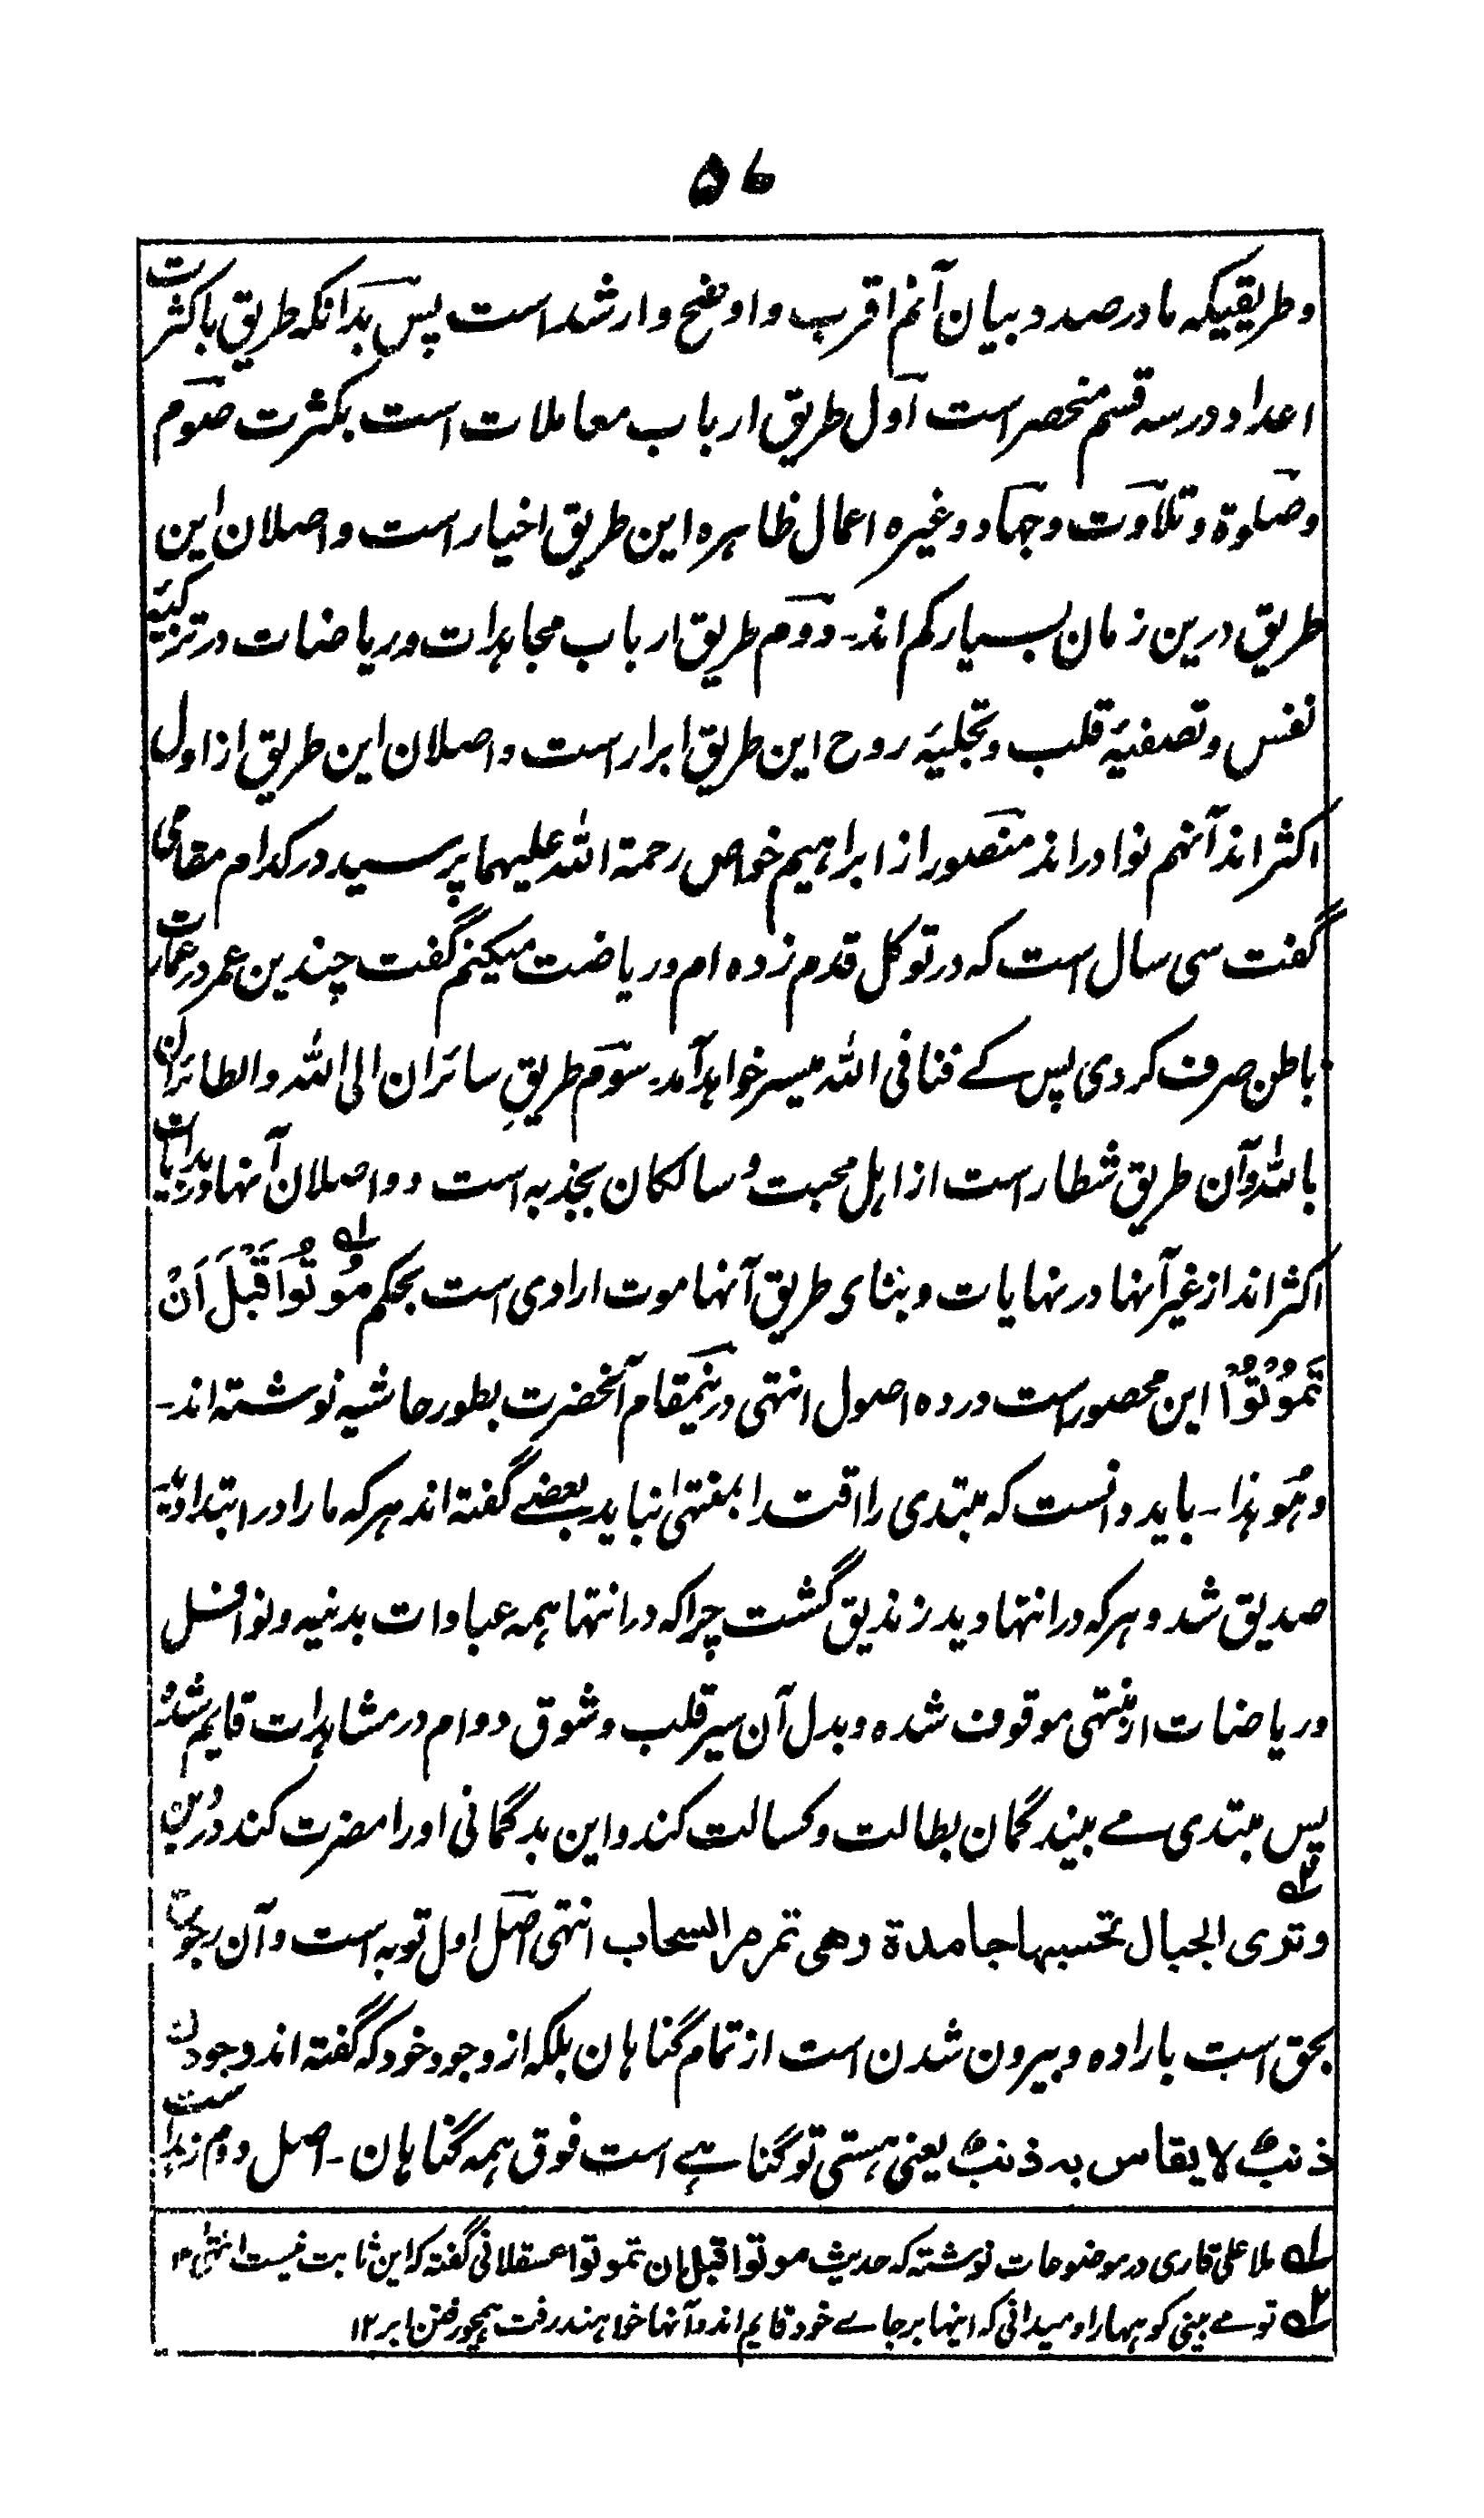 ۵۶
وطریقیکه ما در صدد بیان آنم اقرب و اوضح و ارشد است پس بدانکه طریق با کثرت
اعداد در سه قسم منحصر است اول طریق ارباب معاملات است بکثرت صوم
وصلوة و تلاوت و جهاد و غیره اعمال ظاهره این طریق اخیار است واصلان این
طریق درین زمان بسیار کم اند۔ دوم طریق ارباب مجاهدات و ریاضات در تزکیۂ
نفس و تصفیۂ قلب و تجلیۂ روح این طریق ابرار است واصلان این طریق از اول
اکثر اند آنهم نوادر اند منصور از ابراهیم خواص رحمة الله علیهما پرسید در کدام مقامی
گفت سی سال است که در توکل قدم زده ام و ریاضت میکنم گفت چندین عمر در عمارت
باطن صرف کردی پس کے فنا فی الله میسر خواهد آمد۔ سوم طریقِ سائران الی الله والطائران
بالله وآن طریق شطار است از اهل محبت و سالکان بجذبه است و واصلان آنها در بدایات
اکثر اند از غیر آنها در نهایات و بنای طریق آنها موت ارادی است بحکم مُوْتُوْا قَبْلَ اَنْ
تَمُوْتُوْا این محصور است در ده اصول انتهی درینمقام آنحضرت بطور حاشیه نوشته اند۔
وهُو هذا۔ باید دانست که مبتدی را اقتدا بمنتهی نباید بعضے گفته اند هر که ما را در ابتدا دید
صدیق شد و هر که در انتها دید زندیق گشت چرا که در انتها همه عبادات بدنیه و نوافل
و ریاضات از منتهی موقوف شده و بدل آن سیر قلب و شوق دوام در مشاهدات قایم شده
پس مبتدی مے بیند گمان بطالت و کسالت کند و این بدگمانی او را مضرت کند درین
وتری الجبال تحسبها جامدة وهی تمر مر السحاب انتهی اصل اول توبه است و آن رجوع
بحق است باراده و بیرون شدن است از تمام گناهان بلکه از وجود خود که گفته اند وجودک
ذنبٌ لا یقاس به ذنبٌ یعنی هستی تو گناهے است فوق همه گناهان۔ اصل دوم زهد است
۱؎ ملا علی قاری در موضوعات نوشته که حدیث موتوا قبل ان تموتوا عسقلانی گفته که این ثابت نیست انتهی ۱۲
۲؎ تو مے بینی کوهها را و میدانی که اینها بر جاے خود قایم اند و آنها خواهند رفت همچو رفتن ابر ۱۲